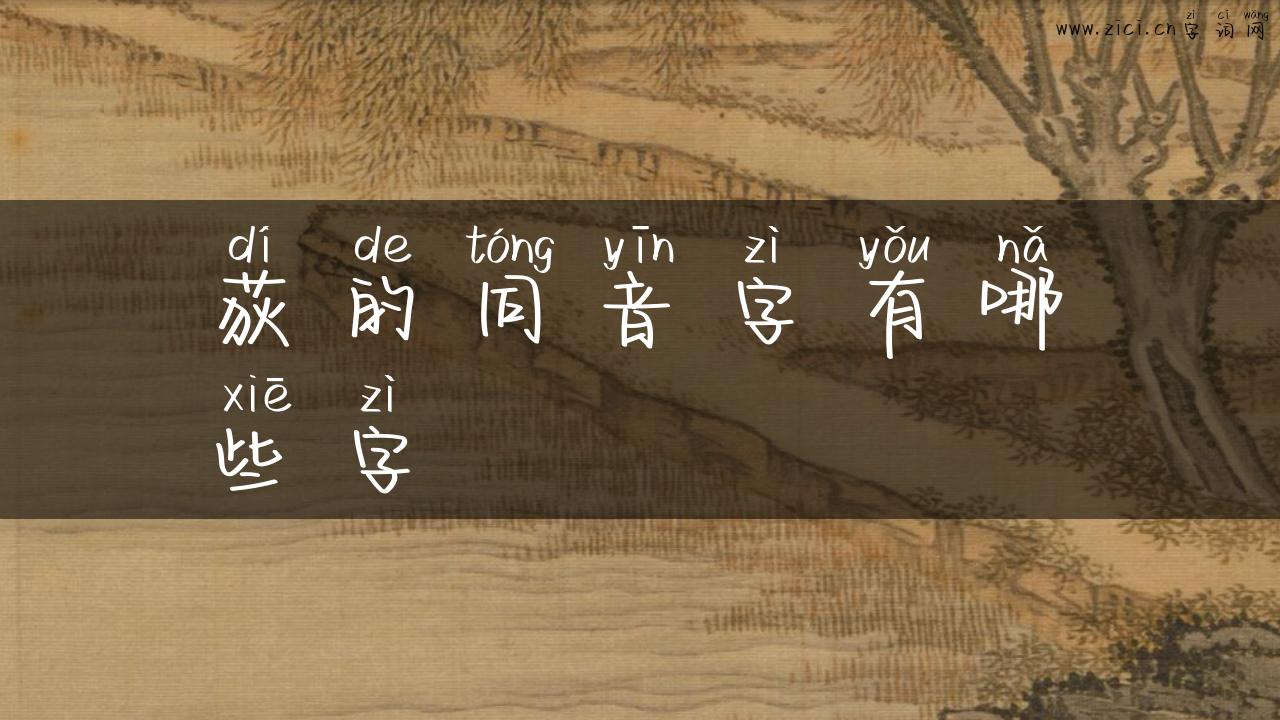 zì cí wǎng
www.zici.cn字词网
dí de tóng yīn zì yǒu nǎ
荻的同音字有哪
xiē zì
些字